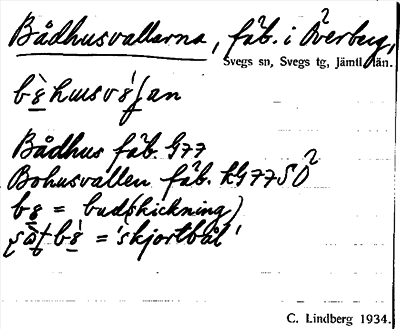 Bådhusvallarna, fäb. i Överberg,
Svegs sn, Svegs tg, Jämtl. län.
Bådhus fäb. G77
Bohusvallen fäb. kG77SO
= bud(skickning)
= 'skjortbål'
C. Lindberg 1934.